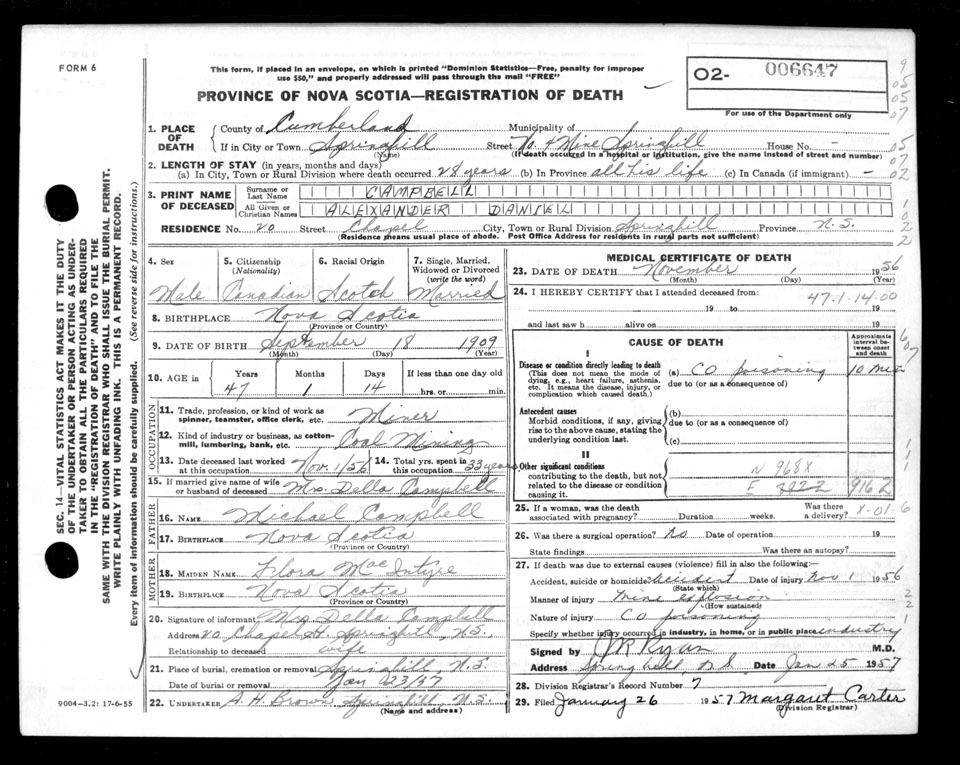 FORM 6
This form, if placed in an envelope, on which is printed "Dominion Statistics—Free, penalty for improper
use $50," and properly addressed will pass through the mail "FREE"
O2- 006647
PROVINCE OF NOVA SCOTIA—REGISTRATION OF DEATH
For use of the Department only
1. PLACE OF DEATH
County of Cumberland Municipality of
If in City or Town Springhill Street No. 4 Mine Springhill House No. -
(Name) (If death occurred in a hospital or institution, give the name instead of street and number)
2. LENGTH OF STAY (in years, months and days)
(a) In City, Town or Rural Division where death occurred 28 years (b) In Province all his life (c) In Canada (if immigrant) -
3. PRINT NAME OF DECEASED
Surname or Last Name CAMPBELL
All Given or Christian Names ALEXANDER DANIEL
RESIDENCE No. 20 Street Chapel City, Town or Rural Division Springhill Province N.S.
(Residence means usual place of abode. Post Office Address for residents in rural parts not sufficient)
4. Sex
Male
5. Citizenship
(Nationality)
Canadian
6. Racial Origin
Scotch
7. Single, Married, Widowed or Divorced
(write the word)
Married
8. BIRTHPLACE Nova Scotia
(Province or Country)
9. DATE OF BIRTH September 18 1909
(Month) (Day) (Year)
10. AGE in Years Months Days If less than one day old
47 1 14 hrs. or min.
OCCUPATION
11. Trade, profession, or kind of work as spinner, teamster, office clerk, etc. Miner
12. Kind of industry or business, as cotton-mill, lumbering, bank, etc. Coal Mining
13. Date deceased last worked at this occupation Nov. 1/56
14. Total yrs. spent in this occupation 33 years
15. If married give name of wife or husband of deceased Mrs. Della Campbell
FATHER
16. NAME Michael Campbell
17. BIRTHPLACE Nova Scotia
(Province or Country)
MOTHER
18. MAIDEN NAME Flora MacIntyre
19. BIRTHPLACE Nova Scotia
(Province or Country)
20. Signature of informant Mrs. Della Campbell
Address 20 Chapel St. Springhill, N.S.
Relationship to deceased wife
21. Place of burial, cremation or removal Springhill, N.S.
Date of burial or removal Jan 23/57
22. UNDERTAKER A. H. Brown Springhill N.S.
(Name and address)
MEDICAL CERTIFICATE OF DEATH
23. DATE OF DEATH November 1 1956
(Month) (Day) (Year)
24. I HEREBY CERTIFY that I attended deceased from:
47-1-14-00
19 to 19
and last saw h alive on 19
CAUSE OF DEATH
Approximate interval between onset and death
I
Disease or condition directly leading to death
(This does not mean the mode of dying, e.g., heart failure, asthenia, etc. It means the disease, injury, or complication which caused death.)
(a) CO poisoning 10 min
due to (or as a consequence of)
Antecedent causes
Morbid conditions, if any, giving rise to the above cause, stating the underlying condition last.
(b)
due to (or as a consequence of)
(c)
II
Other significant conditions
contributing to the death, but not related to the disease or condition causing it.
N 968X
E 9162
25. If a woman, was the death associated with pregnancy? Duration weeks. Was there a delivery? X-01-6
26. Was there a surgical operation? No Date of operation 19
State findings Was there an autopsy?
27. If death was due to external causes (violence) fill in also the following:
Accident, suicide or homicide? Accident Date of injury Nov 1 1956
(State which)
Manner of injury Mine explosion
(How sustained)
Nature of injury CO poisoning
Specify whether injury occurred in industry, in home, or in public place industry
Signed by J R Ryan M.D.
Address Springhill, N.S. Date Jan 25 1957
28. Division Registrar's Record Number 7
29. Filed January 26 1957 Margaret Carter
(Division Registrar)
9004-3.2: 17-6-55
SEC. 14—VITAL STATISTICS ACT MAKES IT THE DUTY
OF THE UNDERTAKER OR PERSON ACTING AS UNDER-
TAKER TO OBTAIN ALL THE PARTICULARS REQUIRED
IN THE "REGISTRATION OF DEATH" AND TO FILE THE
SAME WITH THE DIVISION REGISTRAR WHO SHALL ISSUE THE BURIAL PERMIT.
WRITE PLAINLY WITH UNFADING INK. THIS IS A PERMANENT RECORD.
Every item of information should be carefully supplied. (See reverse side for instructions.)